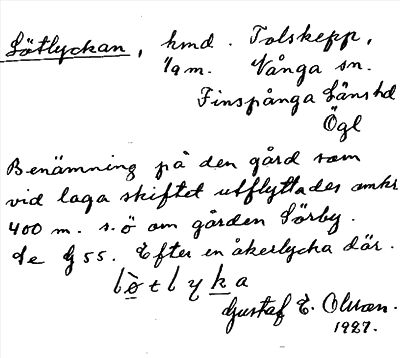 Lötlyckan, hmd. Tolskepp,
1/9 m. Vånga sn.
Finspånga Länshd
Ögl
Benämning på den gård som
vid laga skiftet utflyttades omkr
400 m. s.ö om gården Sörby.
Se G 55. Efter en åkerlycka där.
lö̀tlyka
Gustaf E. Olsson.
1927.